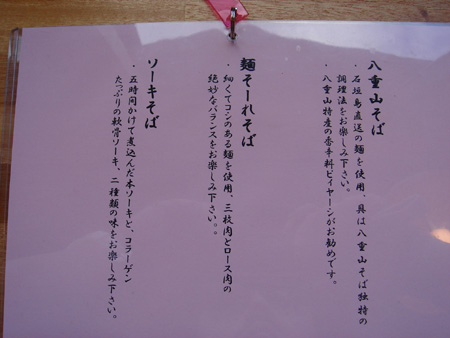 八重山そば
・石垣島直送の麺を使用、具は八重山そば独特の
調理法をお楽しみ下さい。
・八重山特産の香辛料ピィヤーシがお勧めです。
麺そーれそば
・細くてコシのある麺を使用、三枚肉とロース肉の
絶妙なバランスをお楽しみ下さい。。
ソーキそば
・五時間かけて煮込んだ本ソーキと、コラーゲン
たっぷりの軟骨ソーキ、二種類の味をお楽しみ下さい。